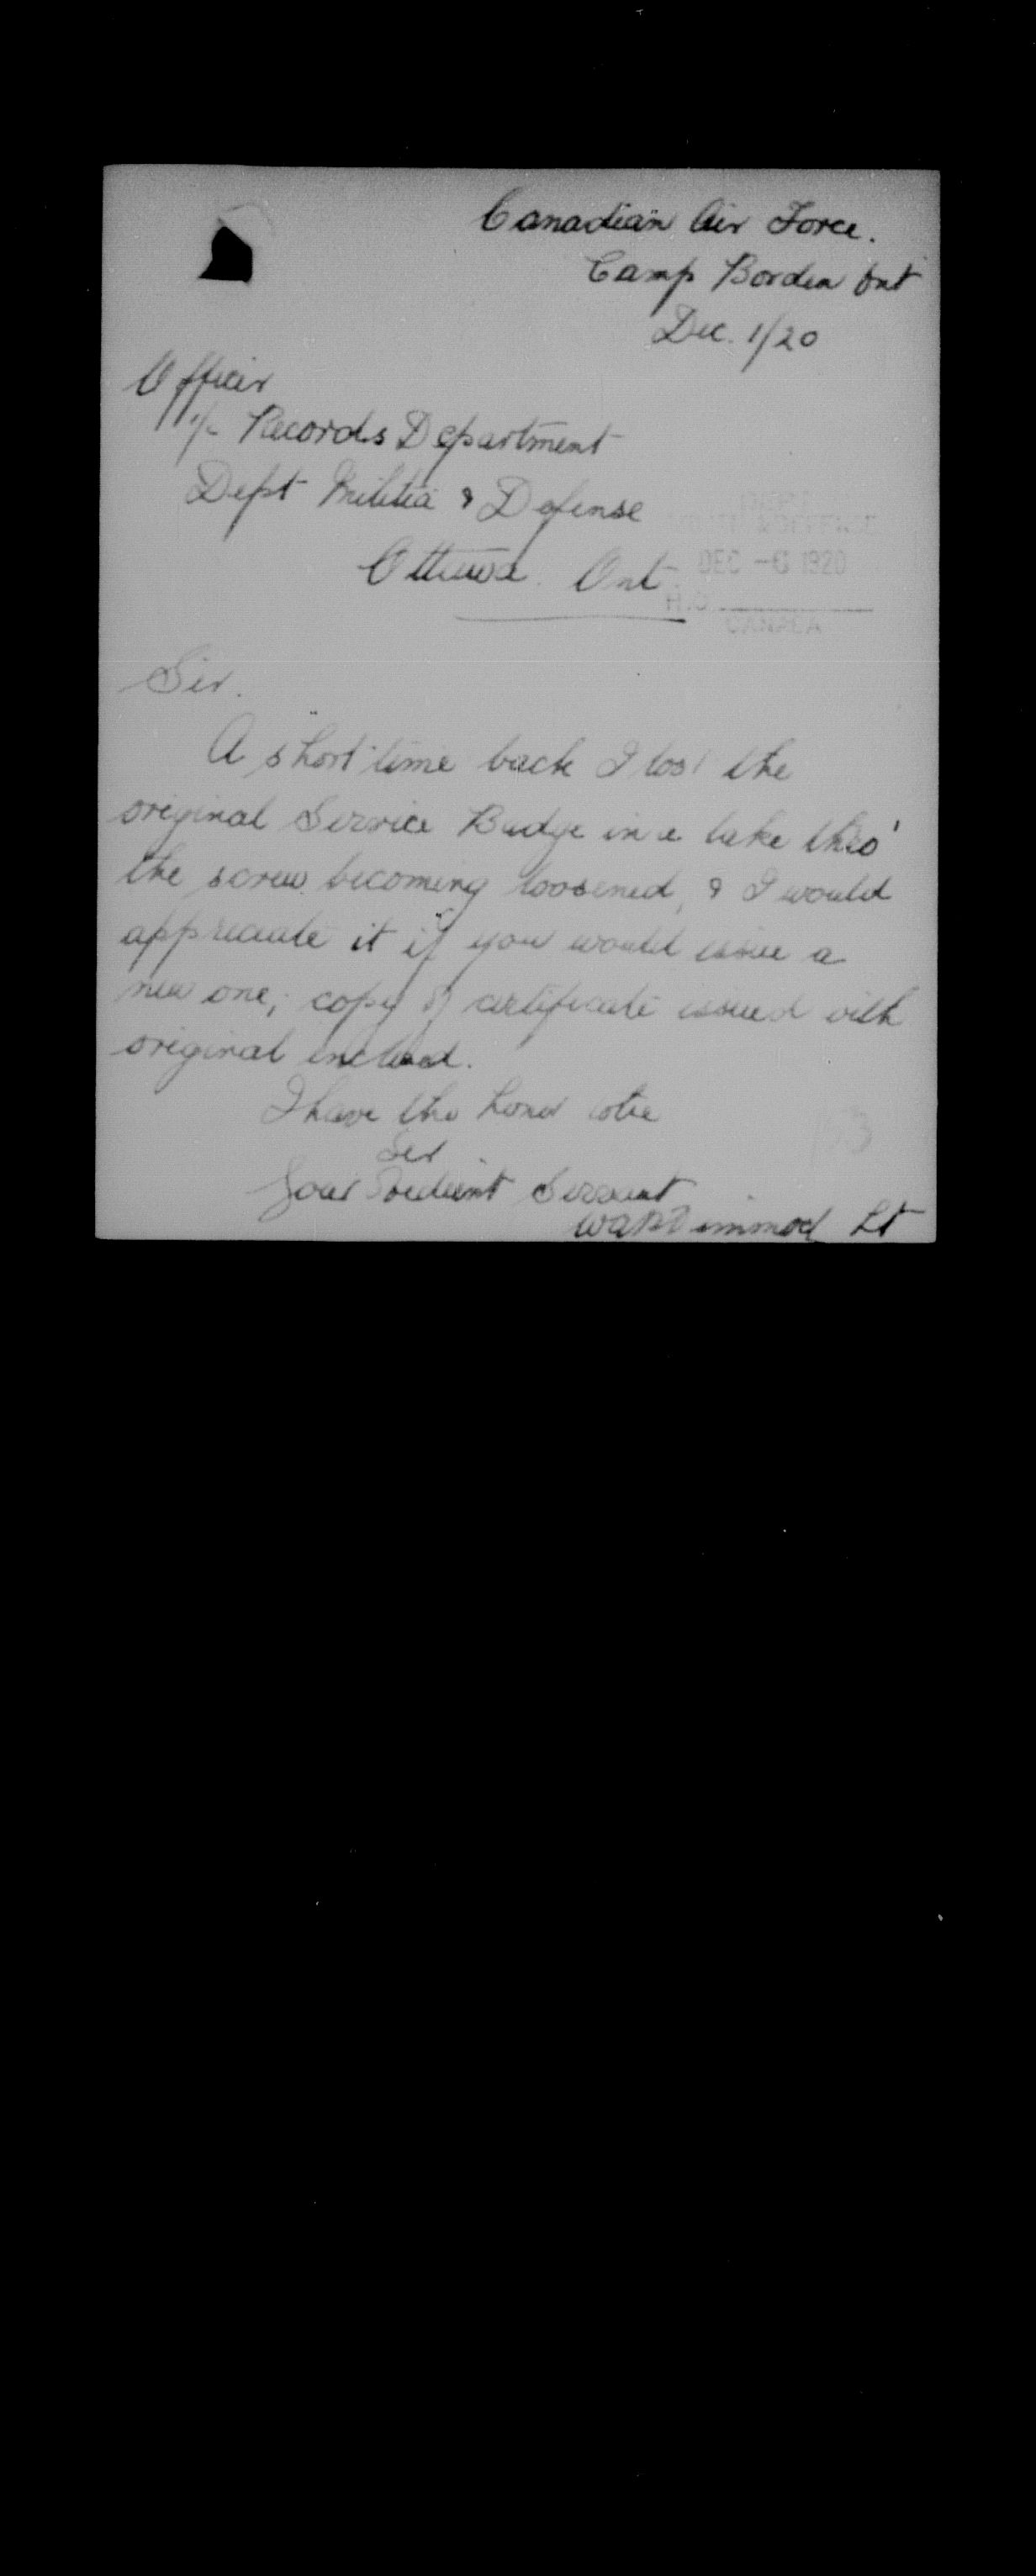 Canadian Air Force.
Camp Borden Ont
Dec. 1/20
Officer
i/c Records Department
Dept Militia & Defense
Ottawa. Ont.
DEPT
& DEFENCE
DEC -6 1920
H.Q.
CANADA
Sir.
A short time back I lost the
original Service Badge in a lake thro'
the screw becoming loosened, & I would
appreciate it if you would issue a
new one; copy of certificate issued with
original inclosed.
I have the honor to be
Sir
Your Obedient Servant
Lt